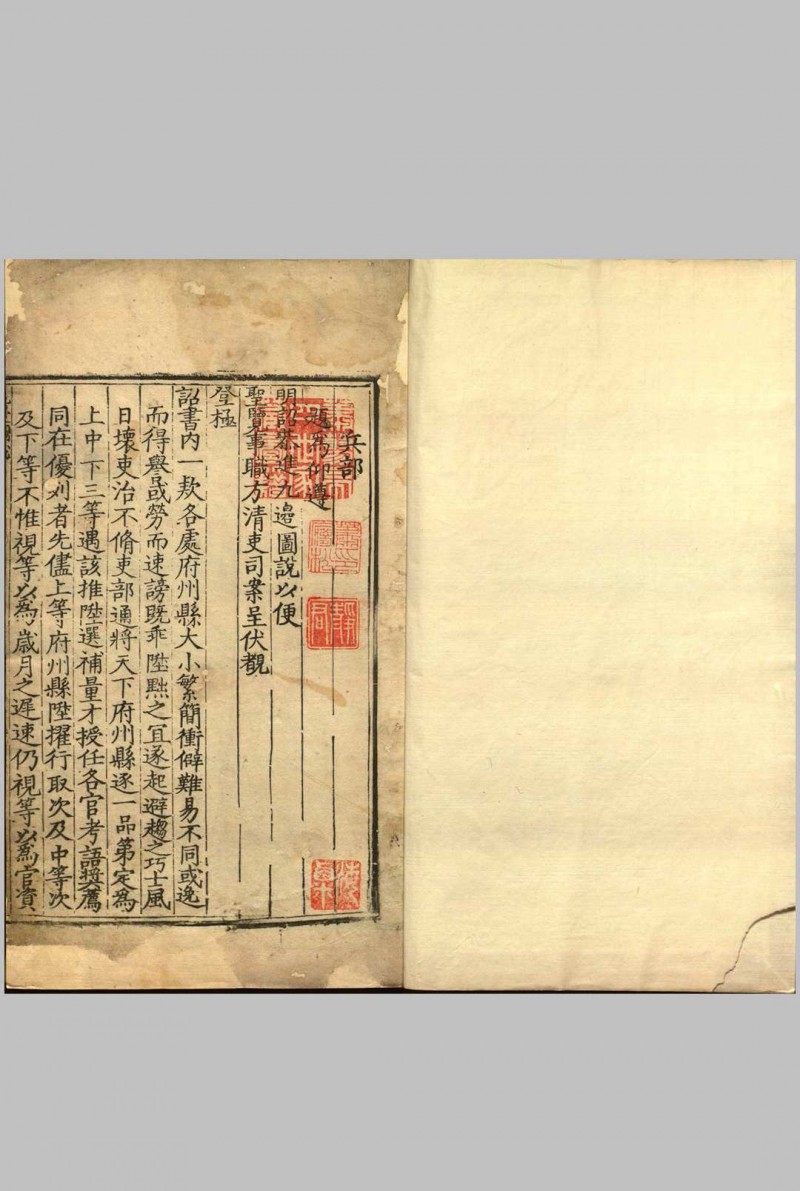 兵部
題為仰遵
明詔恭進九邉圖說以便
聖覽事職方清吏司案呈伏覩
登極
詔書内一欵各處府州縣大小繁簡衝僻難易不同或逸
而得譽或勞而速謗既乖陞黜之宜遂起避趨之巧士風
日壞吏治不脩吏部通將天下府州縣逐一品第定為
上中下三等遇該推陞選補量才授任各官考語奬薦
同在優列者先儘上等府州縣陞擢行取次及中等次
及下等不惟視等以為歲月之遲速仍視等以為官資